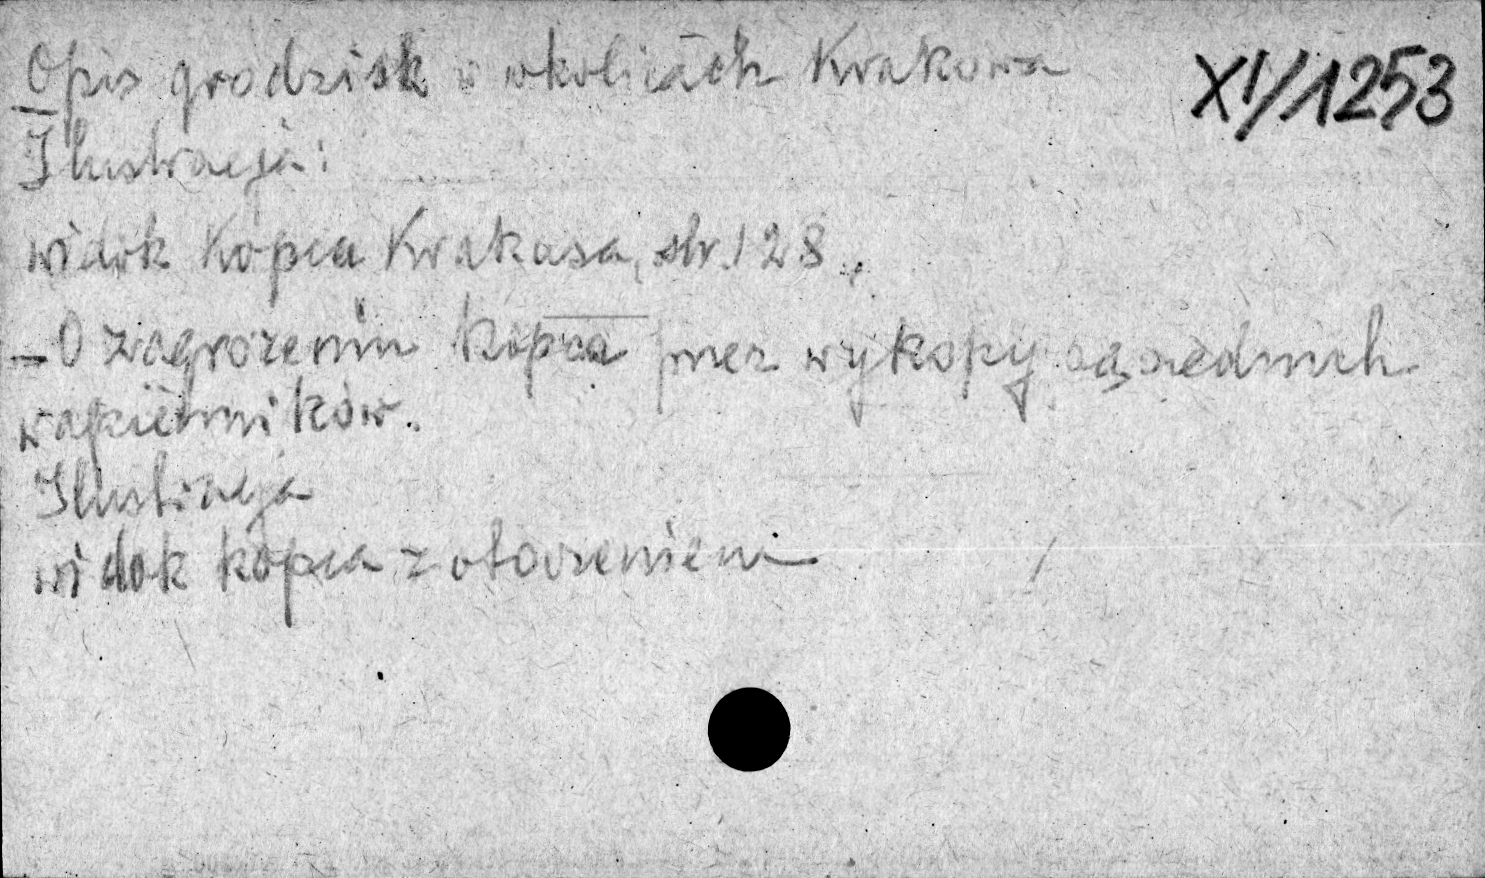 Opis grodzisk w okolicach Krakowa
XI/1253
Ilustracja:
widok Kopca Krakusa, str. 128.
- O zagrożeniu Kopca przez wykopy sąsiednich
wapienników.
Ilustracja
widok kopca z otoczeniem